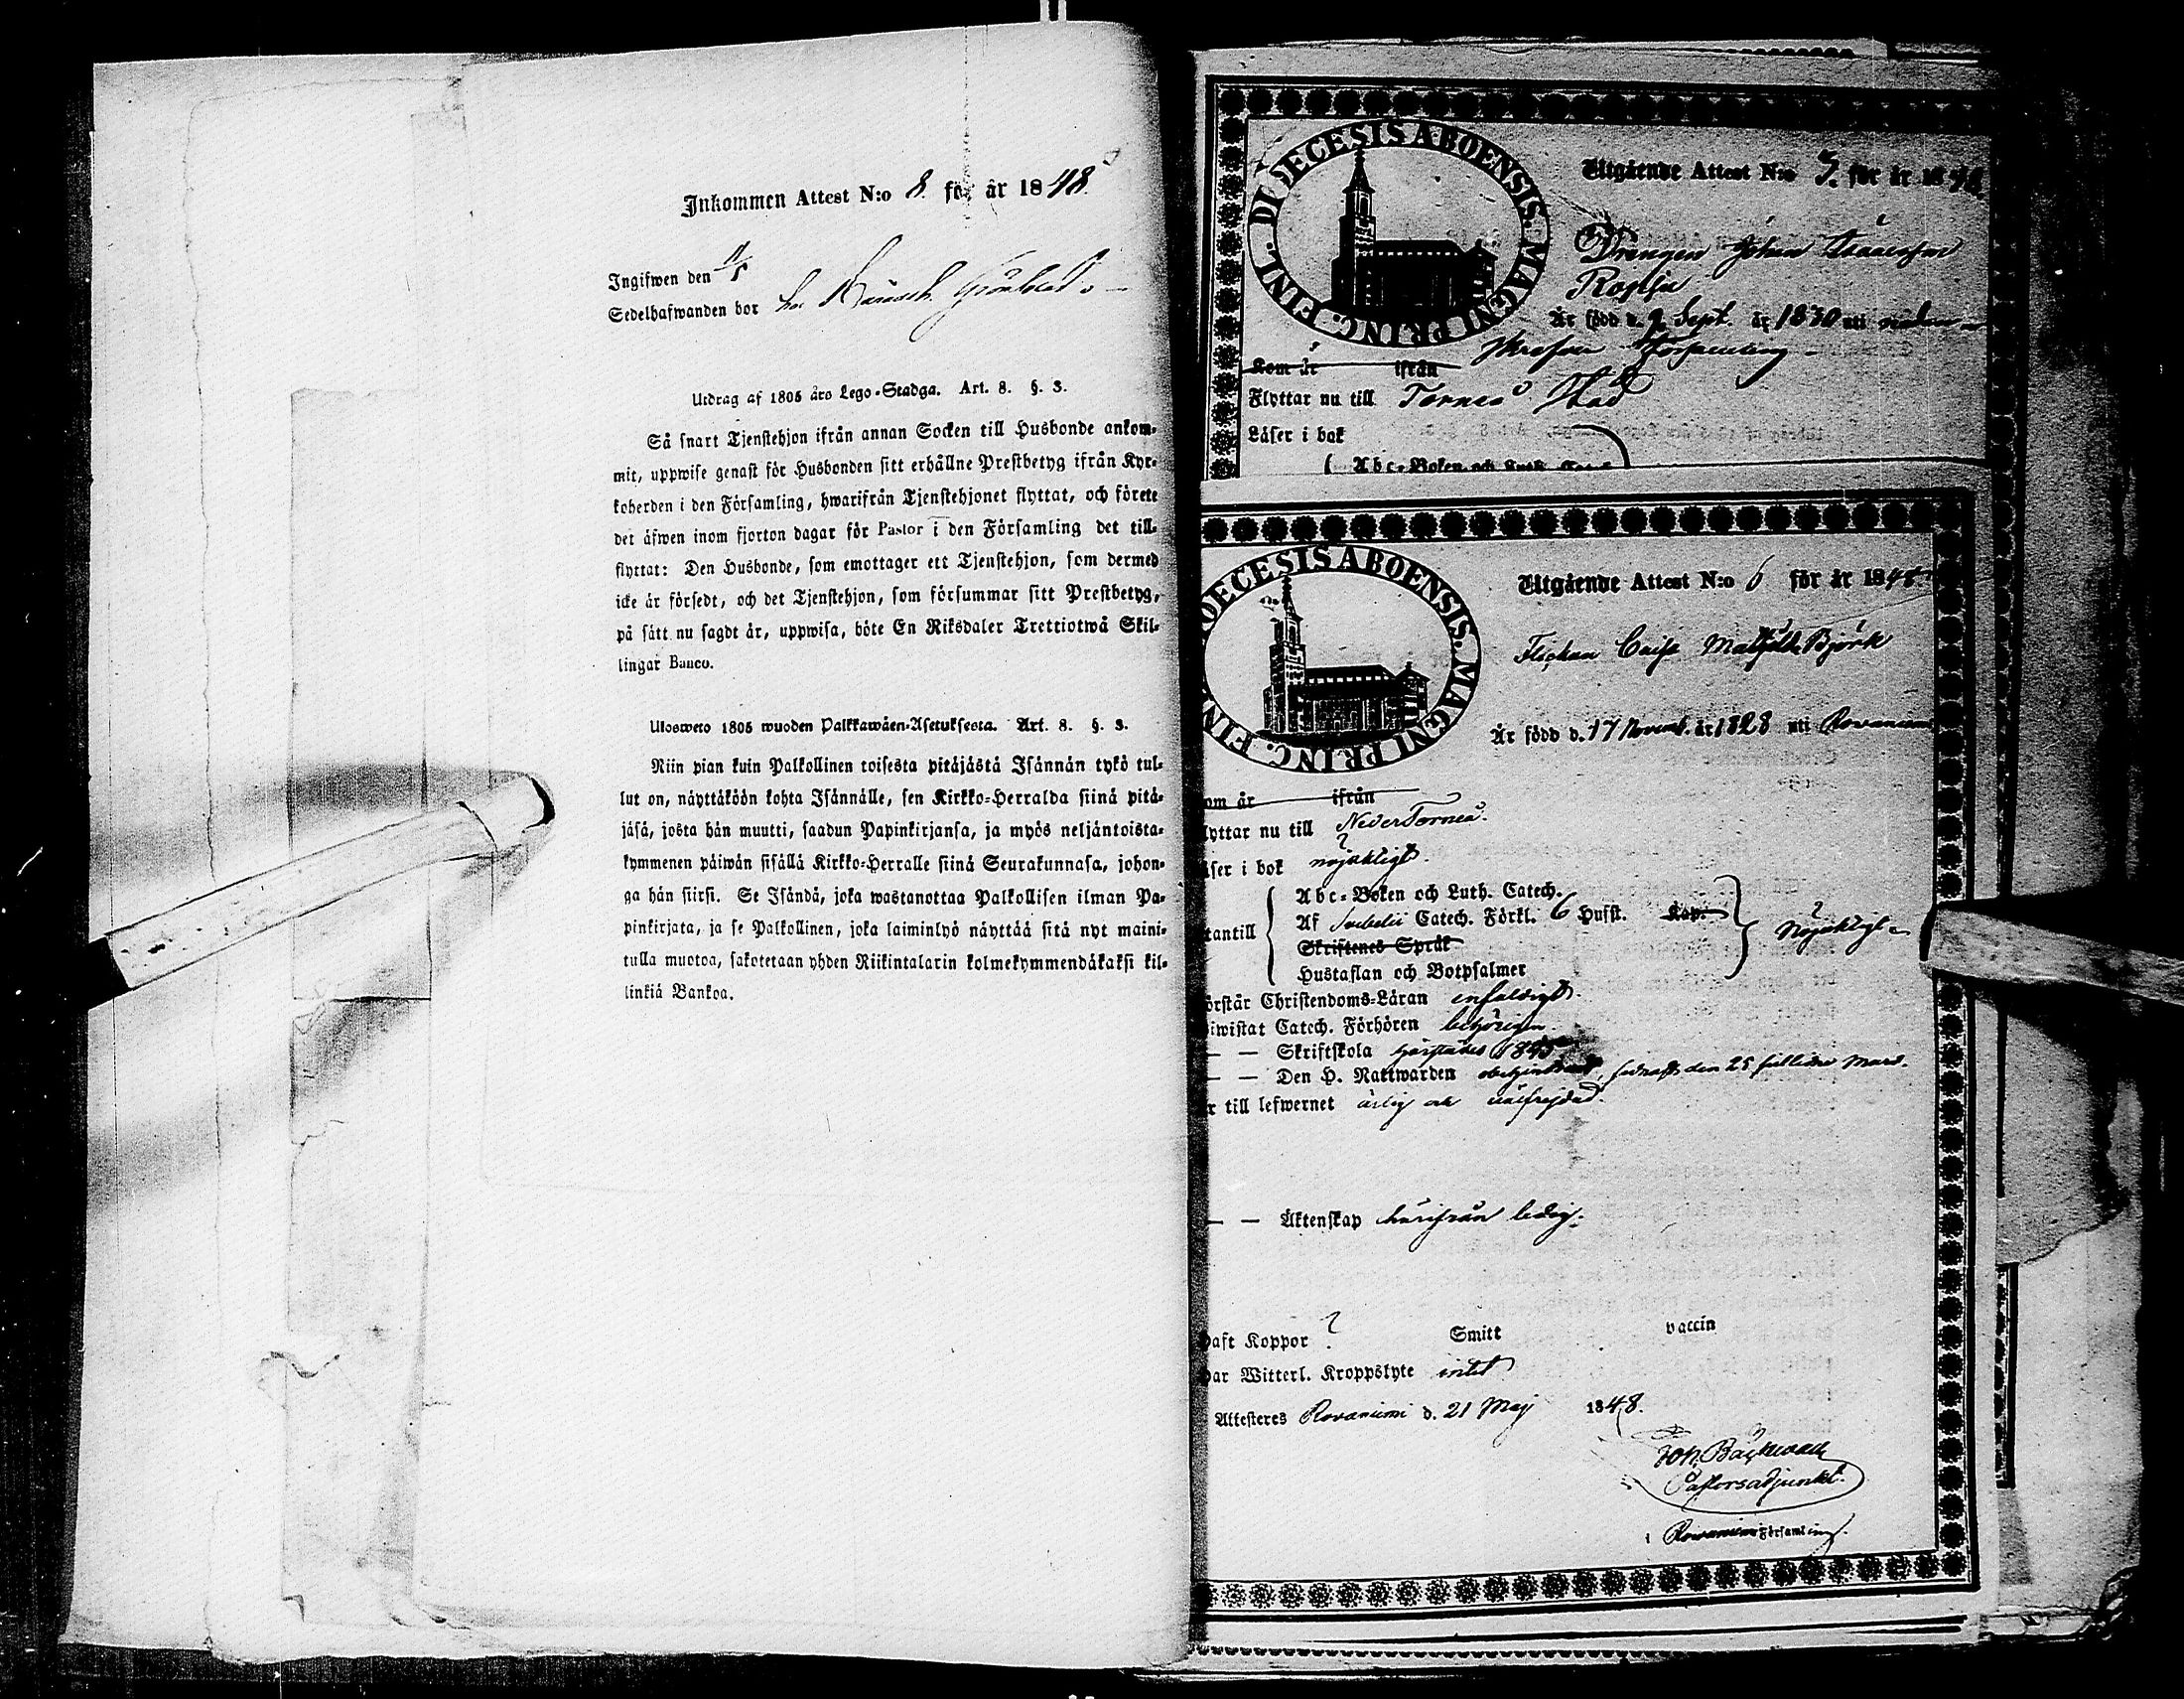 Inkommen Attest N:o 8. för år 1848.
Ingifwen den 11/5
Sedelhafwanden bor
Utdrag af 1805 års Lego-Stadga. Art. 8. §. 3.
Så snart Tjenstehjon ifrån annan Socken till Husbonde ankom-
mit, uppwise genast för Husbonden sitt erhållne Prestbetyg ifrån Kyr-
koherden i den Församling, hwarifrån Tjenstehjonet flyttat, och förete
det äfwen inom fjorton dagar för Pastor i den Församling det till-
flyttat: Den Husbonde, som emottager ett Tjenstehjon, som dermed
icke är försedt, och det Tjenstehjon, som försummar sitt Prestbetyg,
på sätt nu sagdt är, uppwisa, böte En Riksdaler Trettiotwå Skil-
lingar Banco.
Ulosweto 1805 wuoden Palkkawäen-Asetuksesta. Art. 8. §. 3.
Niin pian kuin Palkollinen toisesta pitäjästä Isännän tykö tul-
lut on, näyttäköön kohta Isännälle, sen Kirkko-Herralda siinä pitä-
jäsä, josta hän muutti, saadun Papinkirjansa, ja myös neljäntoista-
kymmenen päiwän sisällä Kirkko-Herralle siinä Seurakunnasa, johon-
ga hän siirsi. Se Isändä, joka wastanottaa Palkollisen ilman Pa-
pinkirjata, ja se Palkollinen, joka laiminlyö näyttää sitä nyt maini-
tulla muotoa, sakotetaan yhden Riikintalarin kolmekymmendäkaksi kil-
linkiä Bankoa.
DIOECESIS ABOENSIS. MAGNI PRINC. FINL.
Utgående Attest N:o 7. för år 1848
Drengen Johan
Är född d. 9 Sept. år 1830 uti
Församling
Kom år ifrån
Flyttar nu till Torneå Stad
Läser i bok
Abc-Boken och Luth.
OECESIS ABOENSIS. MAGNI PRINC. FIN
Utgående Attest N:o 6 för år 1848
Flickan Caisa Mathilda Björk
Är född d. 17 Novemb. år 1828 uti Rovaniemi
om år ifrån
lyttar nu till Neder Torneå.
äser i bok nöjaktigt.
tantill
Abc-Boken och Luth. Catech.
Af Svebelii Catech. Förkl. 6 Hufst. Kap.
Skriftenes Språk
Hustaflan och Botpsalmer
Nöjaktigt
örstår Christendoms-Läran enfaldigt.
iwistat Catech. Förhören behörigen.
— — Skriftskola 1845
— — Den H. Nattwarden obehindrad, sednast den 25 sistlidne Mars.
r till lefwernet ärlig och välfrejdad.
— — Äktenskap härifrån ledig.
aft Koppor ? Smitt vaccin
ar Witterl. Kroppslyte intet
Attesteres Rovaniemi d. 21 Maj 1848.
Joh. Bäckwall
Pastorsadjunkt.
i Rovaniemi Församling.